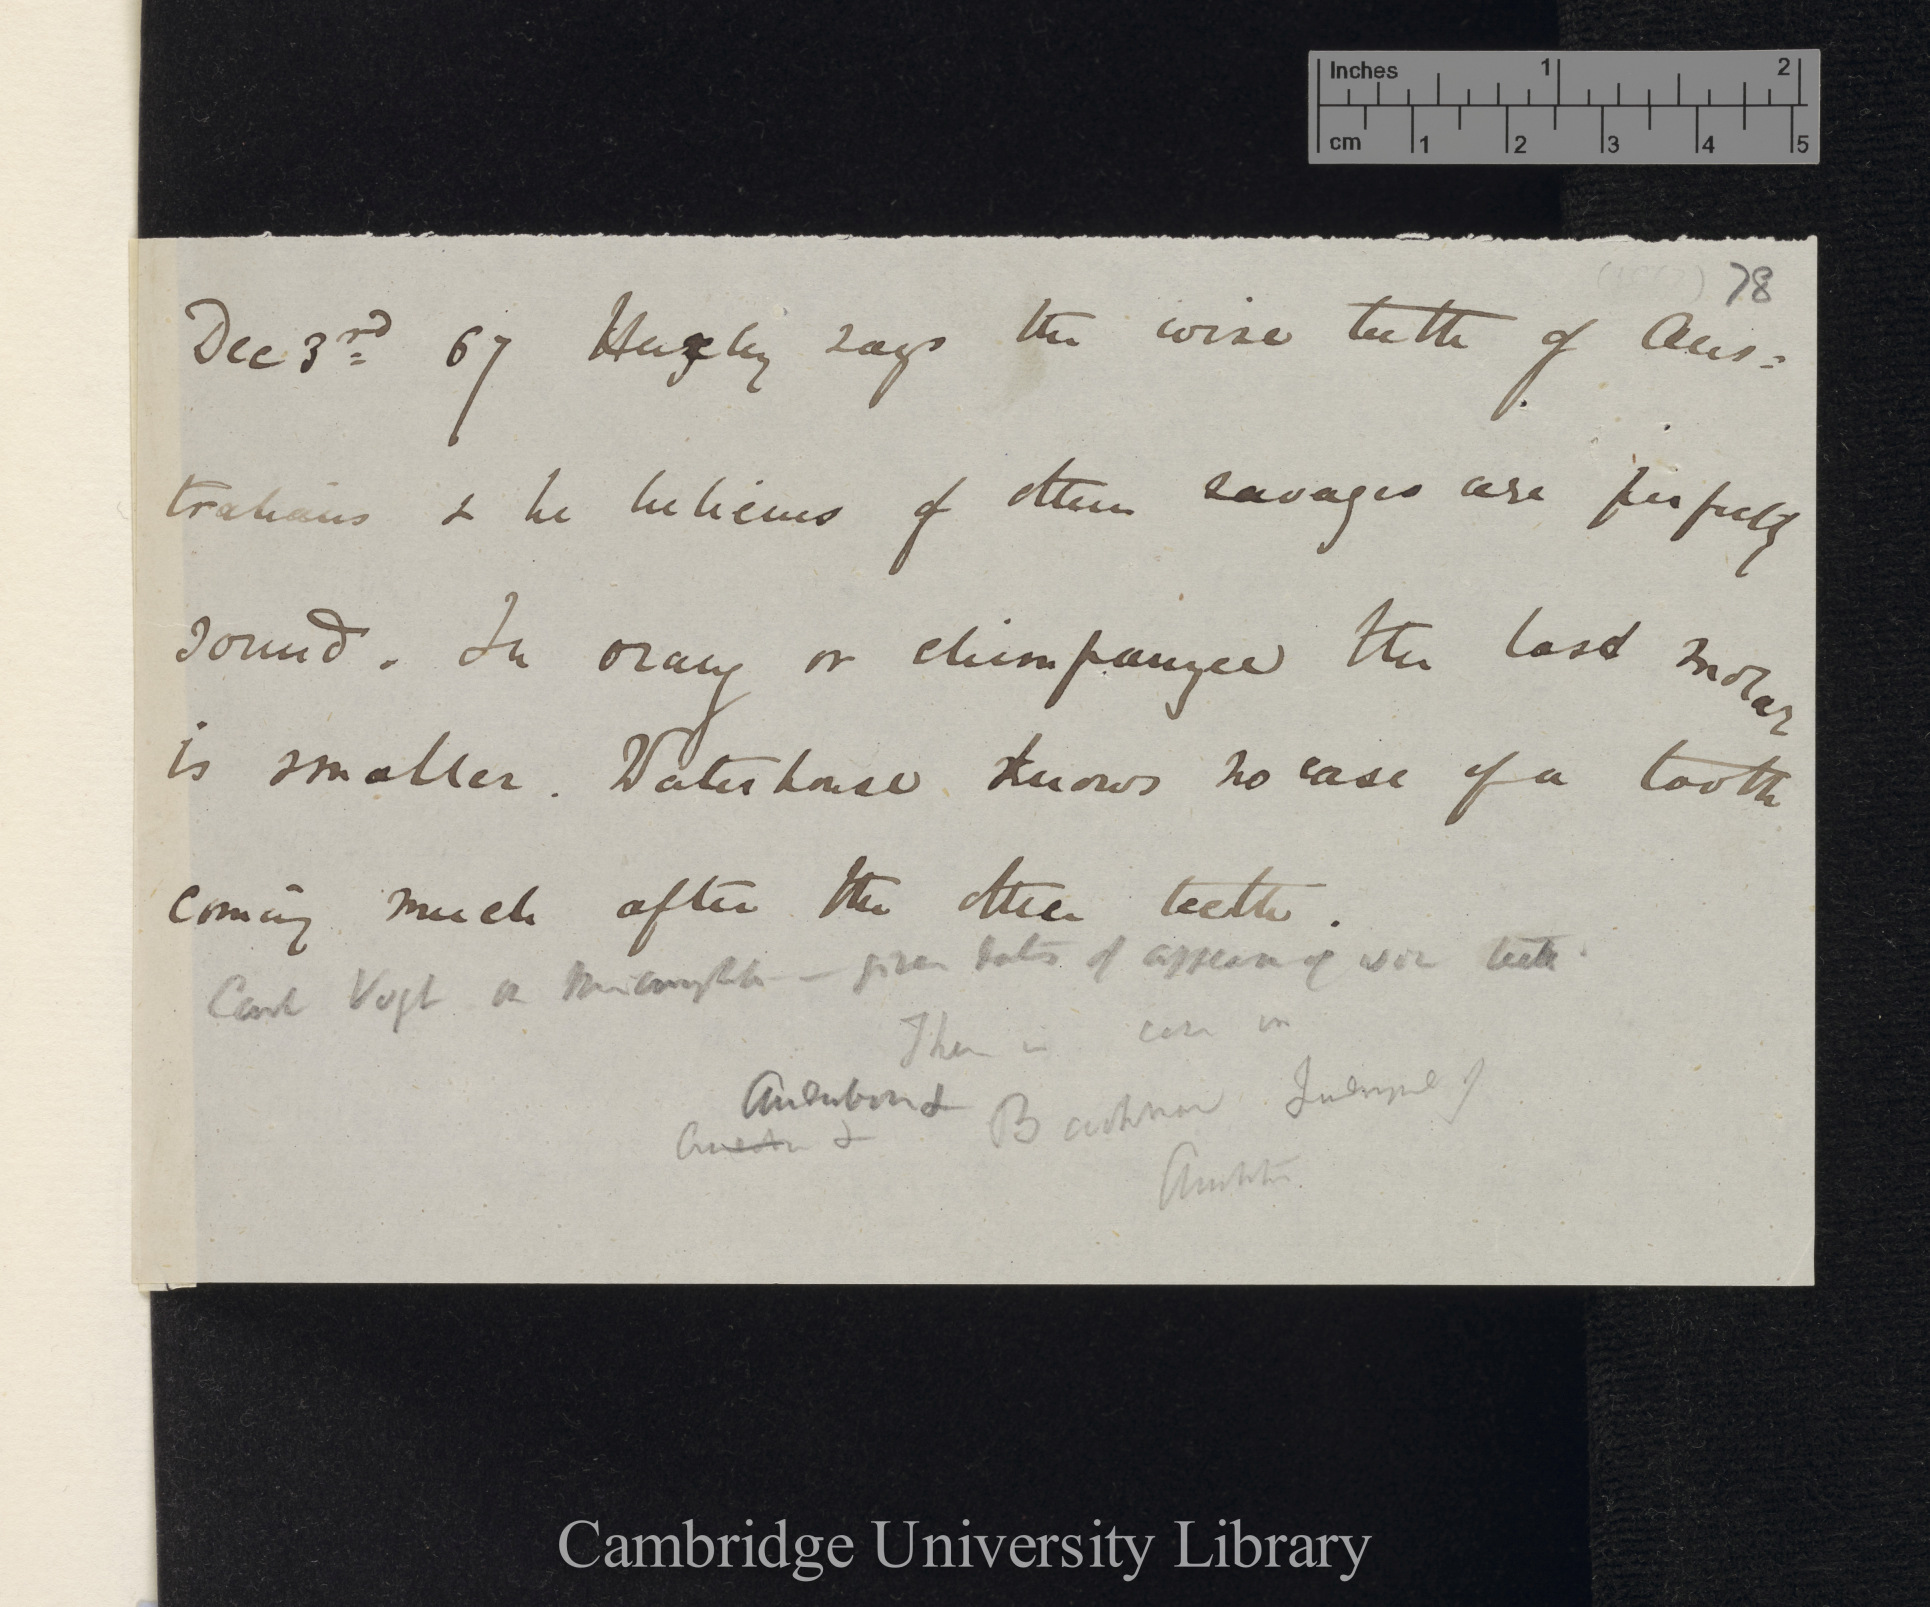 Inches 1 2
cm 1 2 3 4 5
78
Dec 3rd 67 Huxley says the wise teeth of Aus=
tralians & he believes of other savages are perfectly
sound. In orang or chimpanzee the last molar
is smaller. Waterhouse knows no case of a tooth
coming much after the other teeth.
Carl Vogt on Microcephali — gives dates of appearance of wise teeth.
There is case in
Audubon &
& Bachman Quadruped of
Cambridge University Library